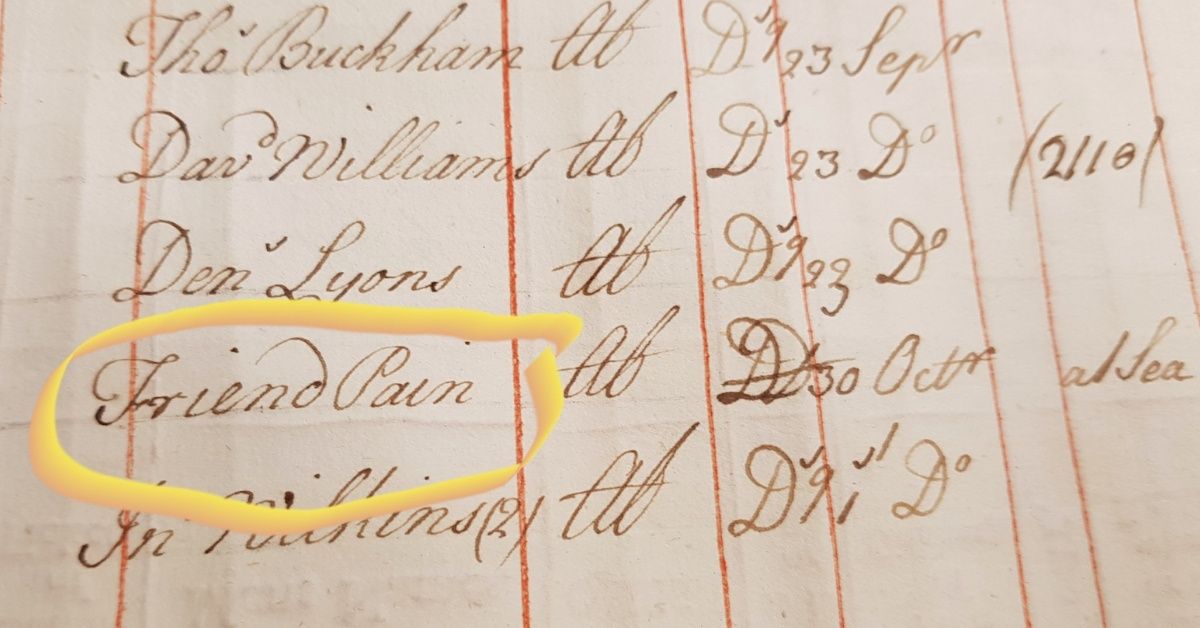 Thos Buckham Ab Ds 23 Sepr
Davd Williams Ab Ds 23 Do (2110)
Dens Lyons Ab Ds 23 Do
Friend Pain Ab DD 30 Octr at Sea
Jn Wilkins (2) Ab Ds 1st Do